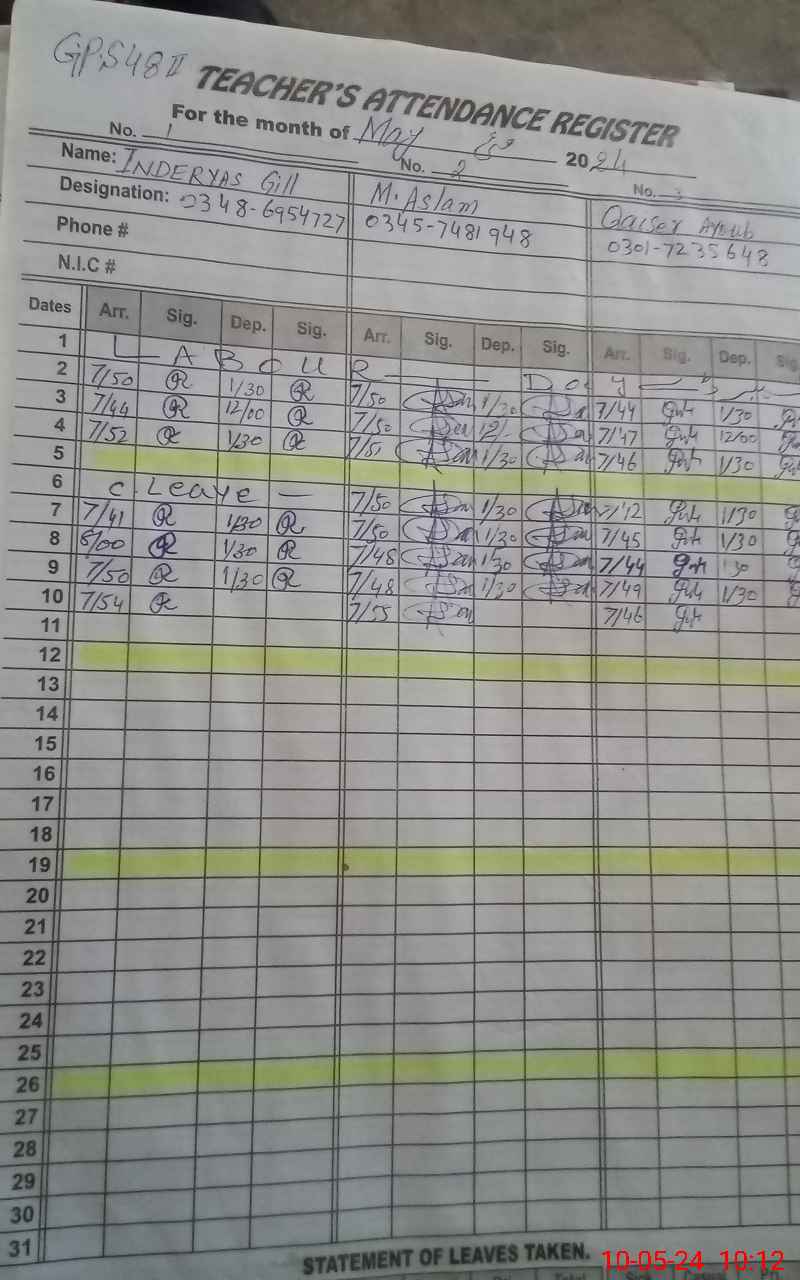 GPS 48 II
TEACHER'S ATTENDANCE REGISTER
For the month of May 2024
No. 1 No. 2 No. 3
Name: INDERYAS Gill M. Aslam Qaiser Ayoub
Designation: 0348-6954727 0345-7481948 0301-7235648
Phone #
N.I.C #
Dates Arr. Sig. Dep. Sig. Arr. Sig. Dep. Sig. Arr. Sig. Dep. Sig
1 L A B O U R Day
2 7/50 1/30 7/50 1/30 7/44 1/30
3 7/44 12/00 7/50 12/- 7/47 12/00
4 7/52 1/30 7/51 1/30 7/46 1/30
5
6 C. Leave — 7/50 1/30 7/42 1/30
7 7/41 1/30 7/50 1/30 7/45 1/30
8 8/00 1/30 7/48 1/30 7/44 1 30
9 7/50 1/30 7/48 1/30 7/49 1/30
10 7/54 7/55 7/46
11
12
13
14
15
16
17
18
19
20
21
22
23
24
25
26
27
28
29
30
31
STATEMENT OF LEAVES TAKEN.
10-05-24 10:12